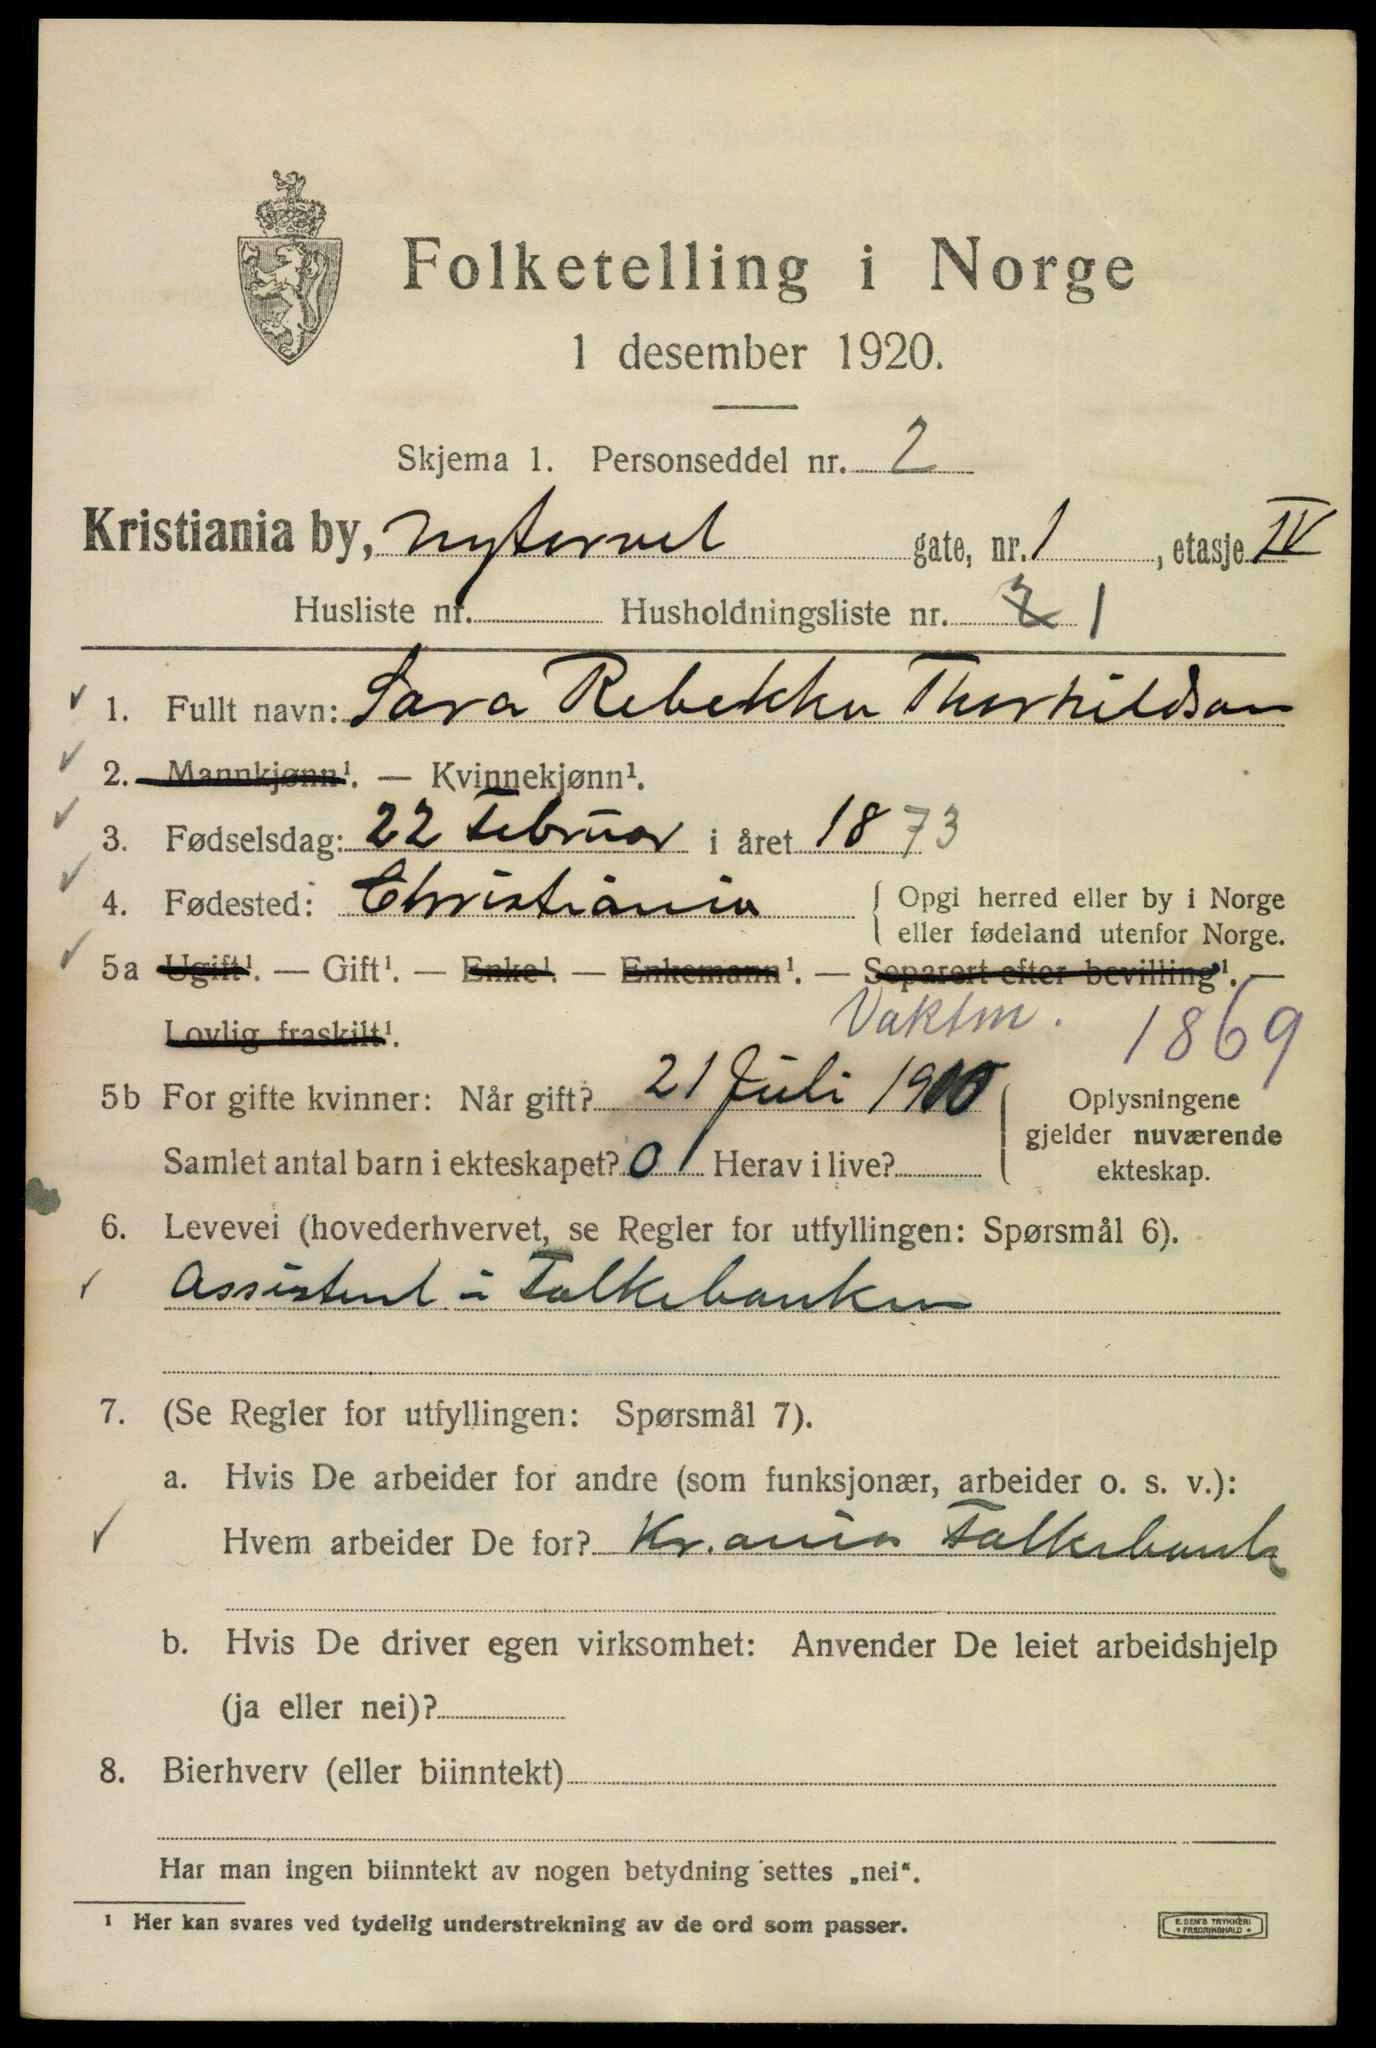 Folketelling i Norge
1 desember 1920.
Skjema 1. Personseddel nr. 2
Kristiania by, Nytorvet gate, nr. 1, etasje IV
Husliste nr. Husholdningsliste nr. 2 1
1. Fullt navn: Sara Rebekka Thorkildsen
2. Mannkjønn¹. — Kvinnekjønn¹.
3. Fødselsdag: 22 Februar i året 1873
4. Fødested: Christiania { Opgi herred eller by i Norge
eller fødeland utenfor Norge.
5a Ugift¹. — Gift¹. — Enke¹. — Enkemann¹. — Separert efter bevilling¹. —
Lovlig fraskilt¹. Vaktm. 1869
5b For gifte kvinner: Når gift? 21 Juli 1910 { Oplysningene
gjelder nuværende
Samlet antal barn i ekteskapet? 0 Herav i live?
ekteskap.
6. Levevei (hovederhvervet, se Regler for utfyllingen: Spørsmål 6).
Assistent i Folkebanken
7. (Se Regler for utfyllingen: Spørsmål 7).
a. Hvis De arbeider for andre (som funksjonær, arbeider o. s. v.):
Hvem arbeider De for? Kr.ania Folkebank
b. Hvis De driver egen virksomhet: Anvender De leiet arbeidshjelp
(ja eller nei)?
8. Bierhverv (eller biinntekt)
Har man ingen biinntekt av nogen betydning settes „nei“.
¹ Her kan svares ved tydelig understrekning av de ord som passer.
E. SEM'S TRYKKERI
* FREDRIKSHALD *